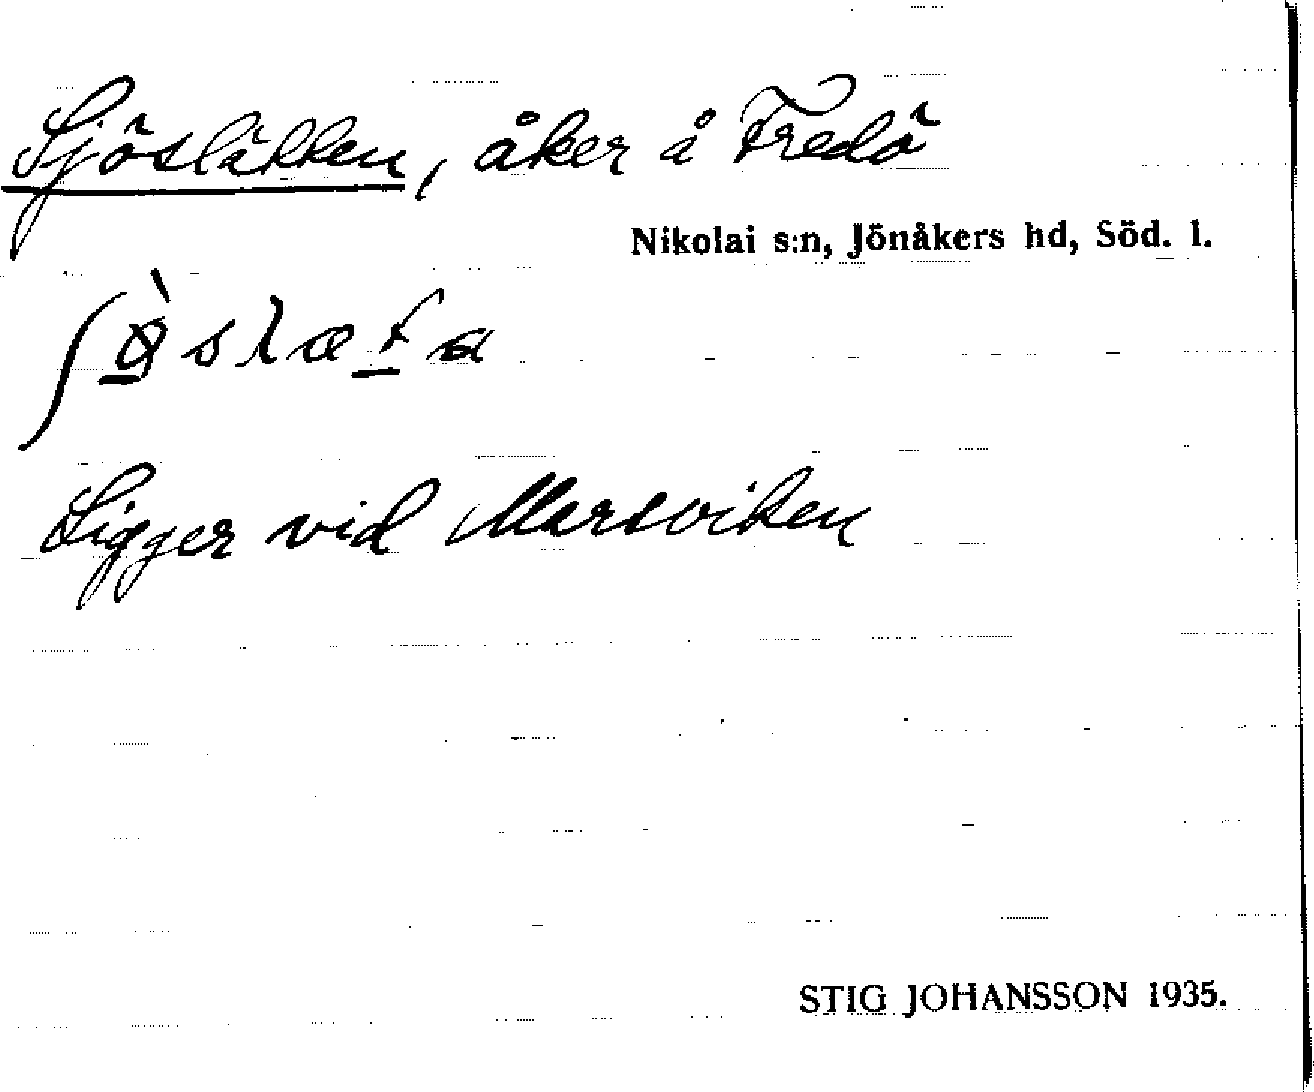 Sjösläkken, åker å Fredö
Nikolai s:n, Jönåkers hd, Söd. l.
Ligger vid Marsviken
STIG JOHANSSON 1935.